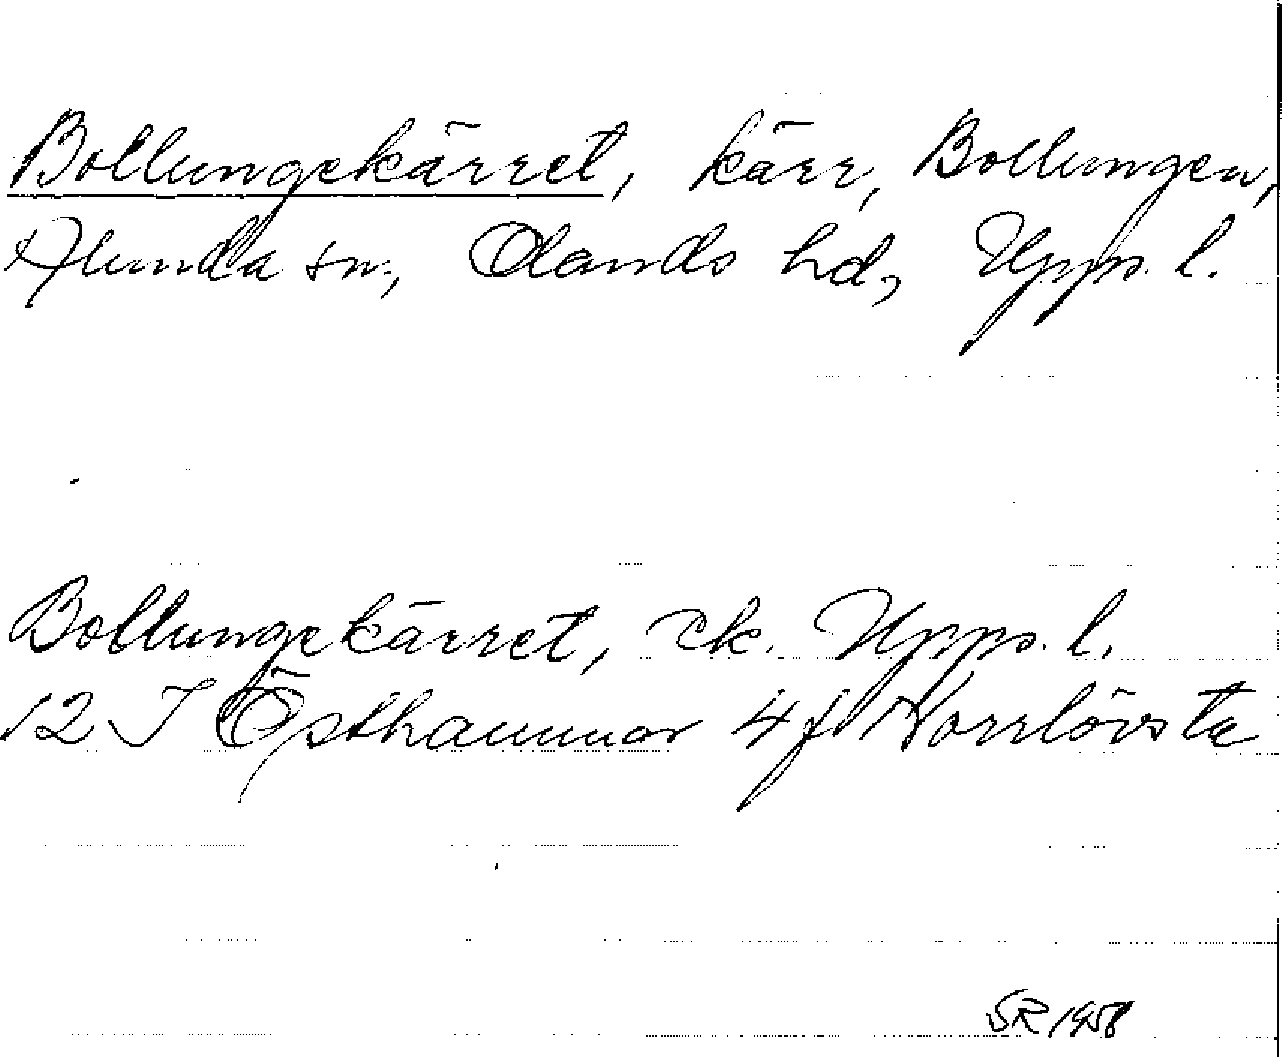 Bollungekärret, kärr, Bollungen,
Alunda sn., Olands hd, Upps. l.
Bollungekärret, ek. Upps. l.
12 I Östhammar 4f Norrlövsta
SR 1958